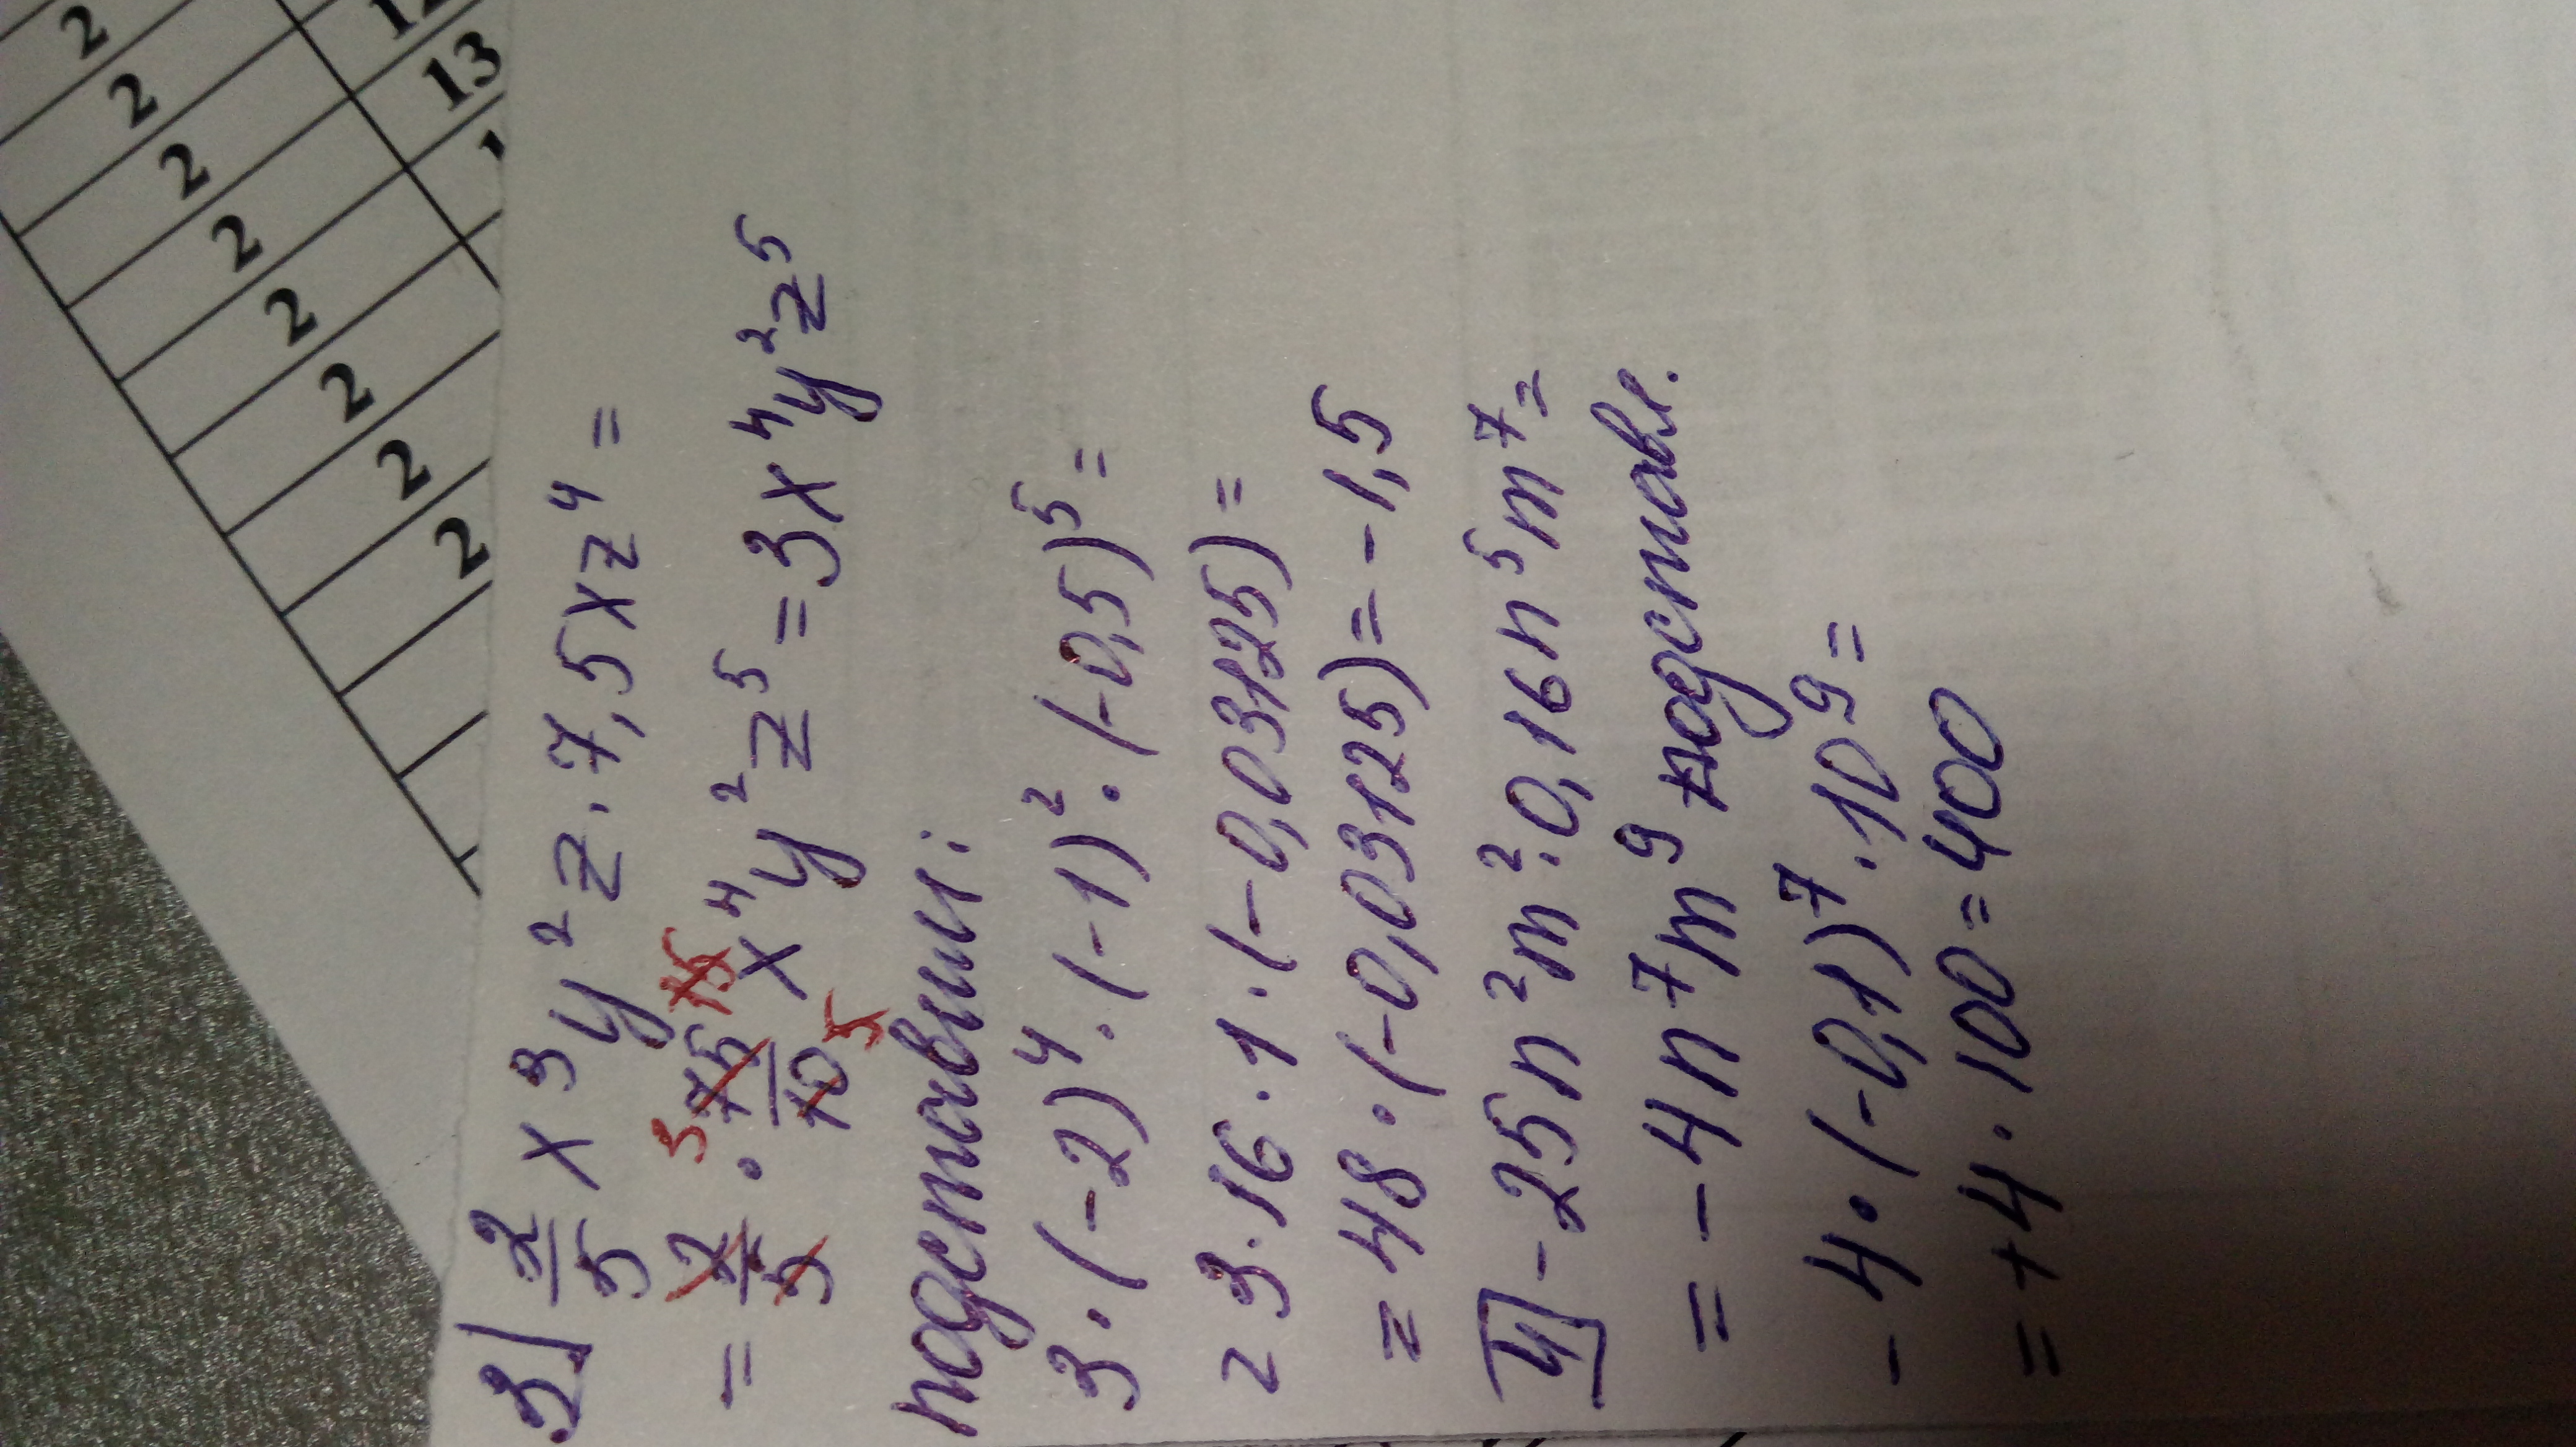 2
2
2
2
2
2
2
2
13
3) 2/5 x³y²z · 7,5xz⁴ =
= 2/5 · 75/10 x⁴y²z⁵ = 3x⁴y²z⁵
3 15
5
подставим:
3·(-2)⁴·(-1)²·(-0,5)⁵ =
= 3·16·1·(-0,03125) =
= 48·(-0,03125) = -1,5
4) -25n²m²·0,16n⁵m⁷ =
= -4n⁷m⁹ подставл.
-4·(-0,1)⁷·10⁹ =
= +4·100 = 400